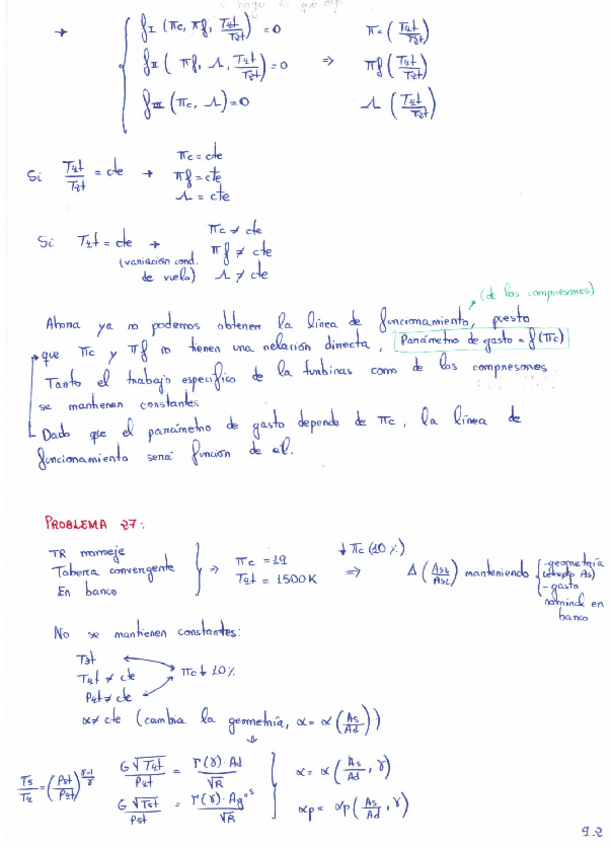 → f_I (πc, πf, T4t/T2t) = 0 π= (T4t/T2t)
f_II ( πf, Λ, T4t/T2t) = 0 ⇒ πf (T4t/T2t)
f_III (πc, Λ) = 0 Λ (T4t/T2t)
Si T4t/T2t = cte → πc = cte
πf = cte
Λ = cte
Si T4t = cte → πc ≠ cte
(variación cond. de vuelo) πf ≠ cte
Λ ≠ cte
(de los compresores)
Ahora ya no podemos obtener la línea de funcionamiento, puesto
que πc y πf no tienen una relación directa, Parámetro de gasto = f(πc)
Tanto el trabajo específico de la turbinas como de los compresores
se mantienen constantes
Dado que el parrámetro de gasto depende de πc, la línea de
funcionamiento será función de el.
PROBLEMA 27:
TR monoeje
Tobera convergente
En banco
⇒ πc = 19
T4t = 1500K
↓πc (10 %)
⇒ Δ (As2/As1) manteniendo
- geometría
(excepto As)
- gasto
nominal en
banco
No se mantienen constantes:
T3t
T4t ≠ cte πc ↓ 10%
P4t ≠ cte
α ≠ cte (cambia la geometría, α = α (As/Ad))
T5/T4 = (P5t/P4t)^γ-1/γ
G√T4t/P4t = Γ(γ)·Ad/√R α = α (As/Ad, γ)
G√T5t/P5t = Γ(γ)·A8/√R αp = αp (As/Ad, γ)
9.2